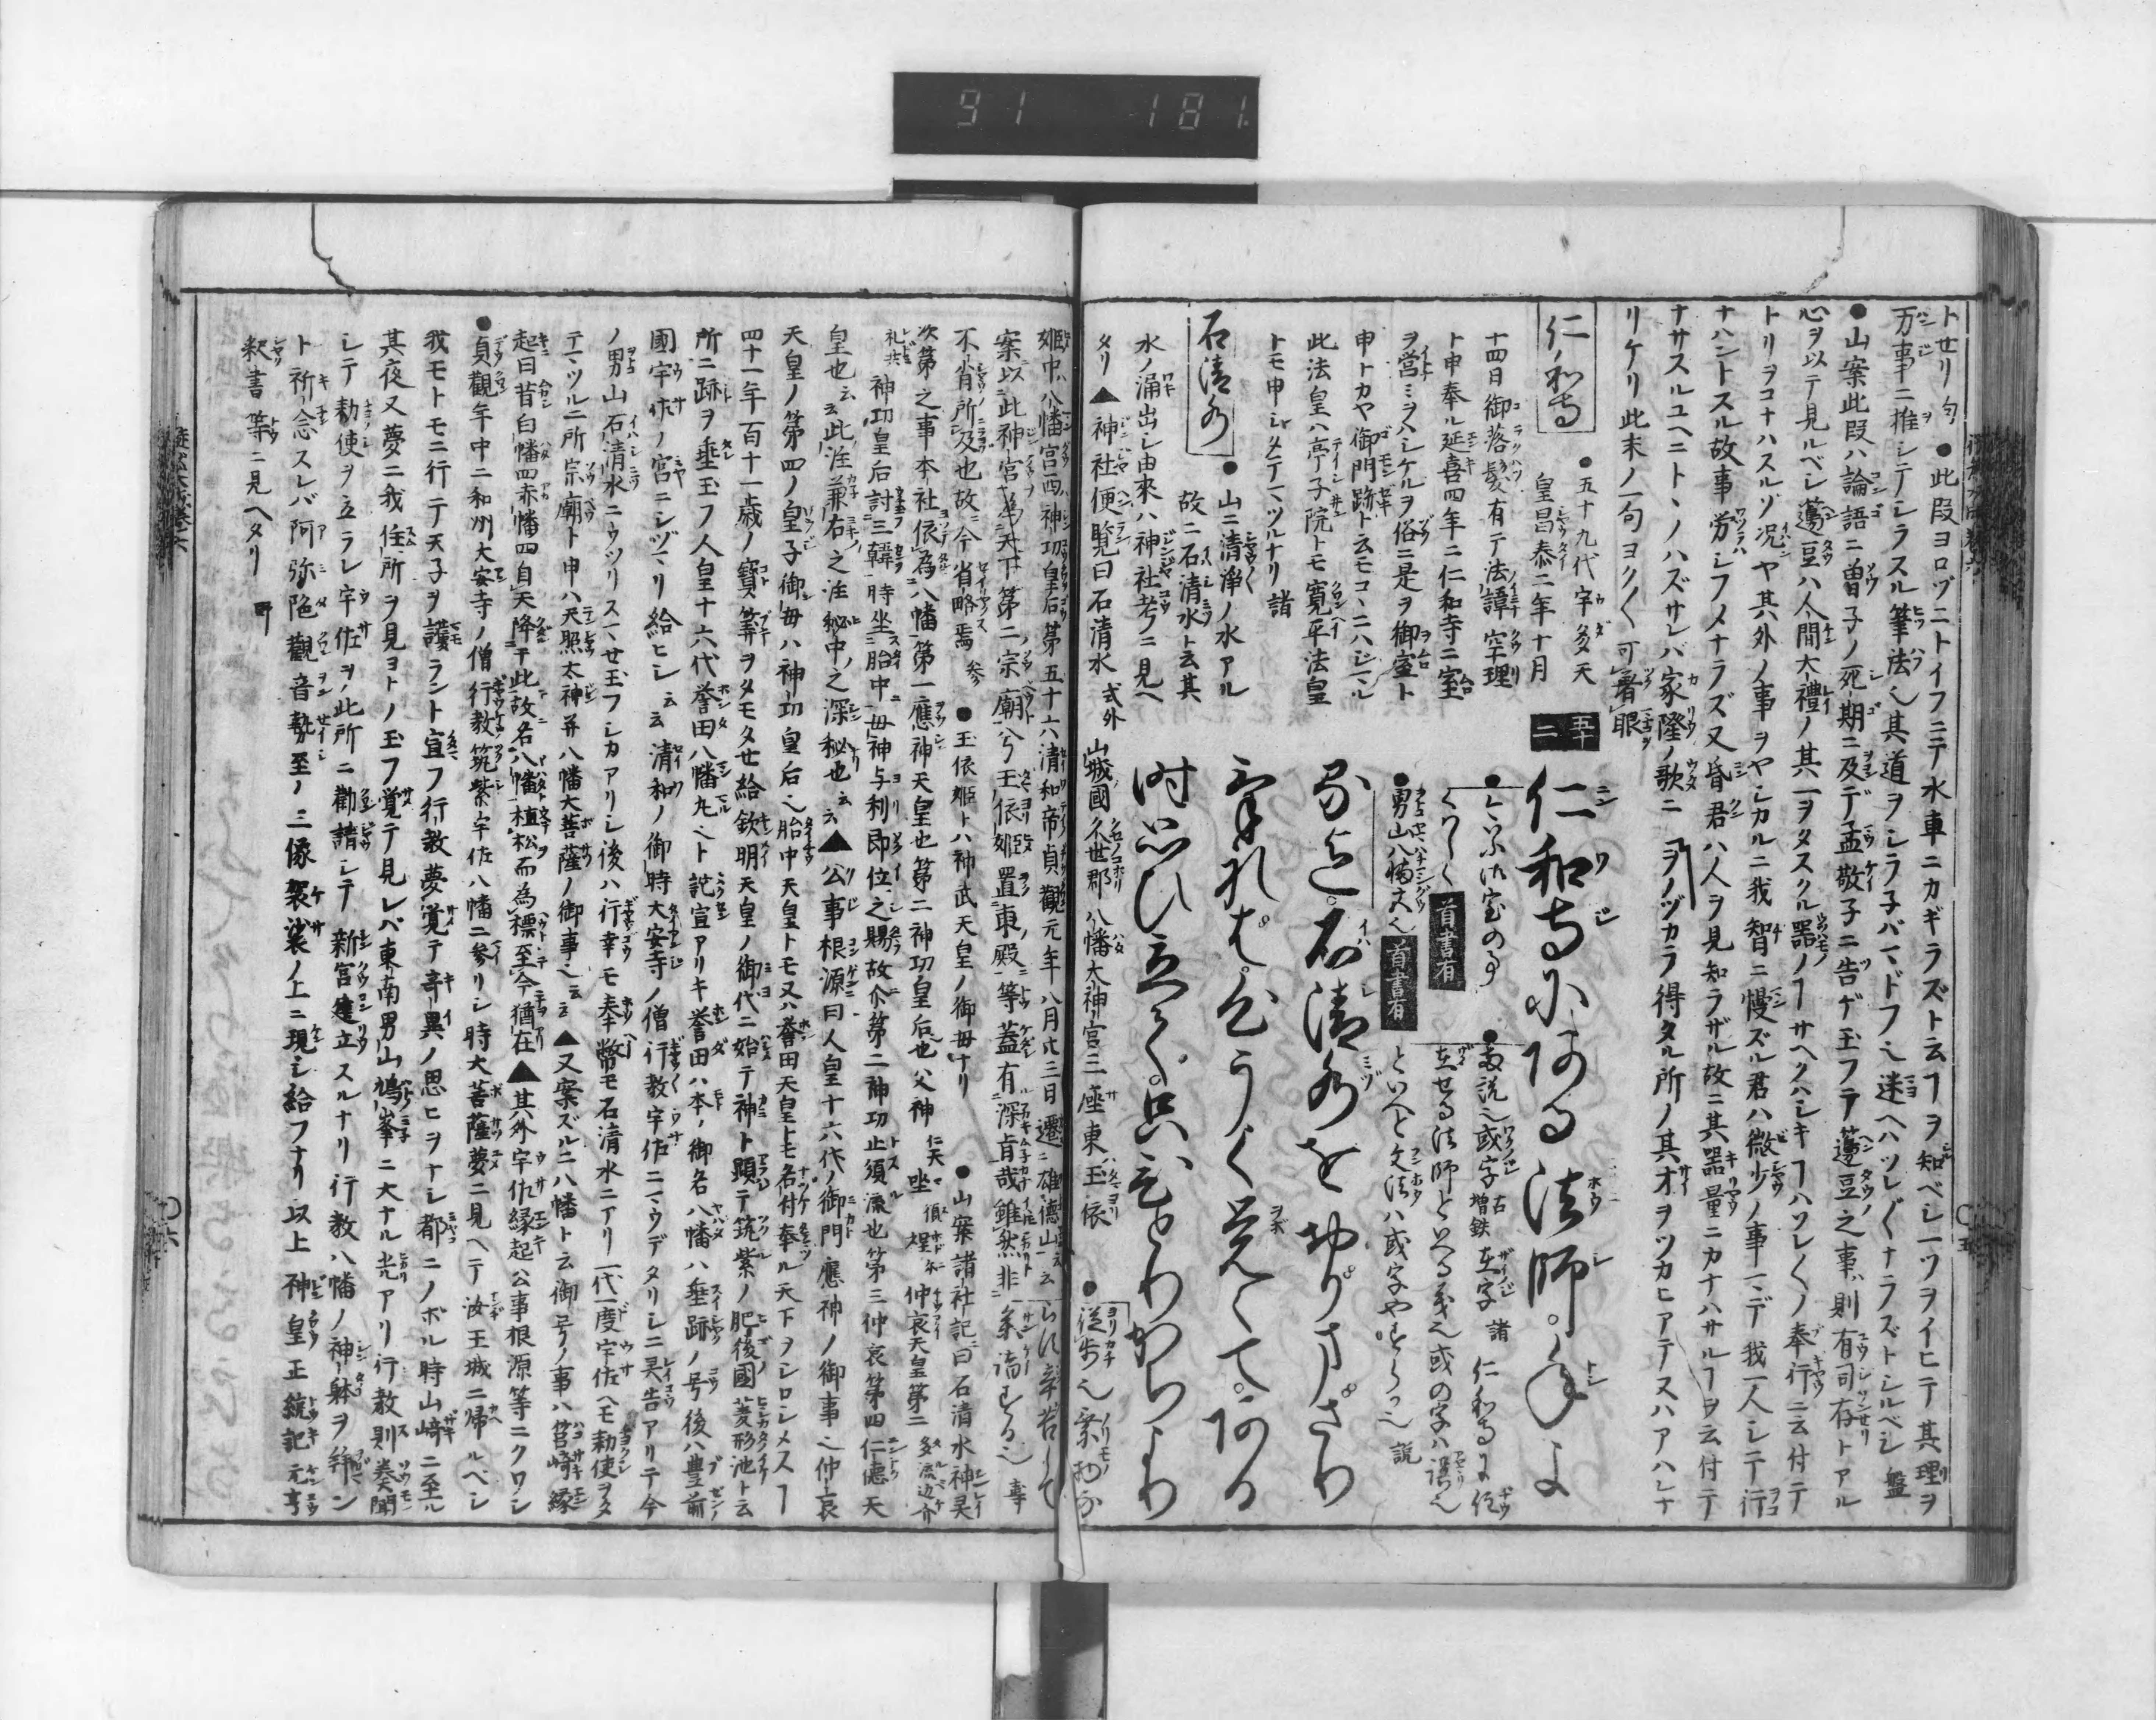 91 181
トせリ 句 ●此段ヨロヅニトイフニテ水車ニカギラズト云ヿヲ知ベシ一ツヲイヒテ其理ヲ
万事ニ推シテシラスル筆法也其道ヲシラ子バマドフ也迷ヘハツレ〴〵ナラズトシルベシ 盤
●山案此段ハ論語ニ曽子ノ死期ニ及デ孟敬子ニ告ゲ玉フテ籩豆之事ハ則有司存トアル
心ヲ以テ見ルベシ籩豆ハ人間大禮ノ其一ヲタスクル器ノヿサヘクハシキヿハソレ〳〵ノ奉行ニ云付テ
トリヲコナハスルゾ况ヤ其外ノ事ヲヤシカルニ我智ニ慢ズル君ハ微少ノ事マデ我一人シテ行
ナハントスル故事労シフメナラズ又昏君ハ人ヲ見知ラザル故ニ其器量ニカナハサルヿヲ云付テ
ナサスルユヘニトヽノハズサレバ家隆ノ歌ニ ヲノヅカラ得タル所ノ其オヲツカヒアテスハアハレナ
リケリ此末ノ一句ヨク〳〵可着眼
仁和寺
●五十九代宇多天
皇昌泰二年十月
十四日御落髪有テ法諱空理
ト申奉ル延喜四年ニ仁和寺ニ室
ヲ営ミヲハシケルヲ俗ニ是ヲ御室ト
申トカヤ御門跡ト云モコヽニハジマル
此法皇ハ亭子院トモ寛平法皇
トモ申シタテマツルナリ 諸
石清水
●山ニ清浄ノ水アル
故ニ石清水ト云其
水ノ涌出シ由來ハ神社考ニ見ヘ
タリ▲神社便覧曰石清水 式外
五十二
仁和寺にある法師。年よ
●今いふ御室の事
くハしく 首書有
●男山八幡宮也 首書有
●両説也或字 古 増鉄 在字 諸 仁和寺に住
在せる法師といへる義也或の字ハ誤也
といへと文法ハ或字やすらか也 説
る迄。石清水をおがまざり
ければ。心うく覚えて。ある
時思ひ立て。只ひとりかちより
山城國久世郡八幡大神宮三座東玉依
●従歩也乗物な
姫中八幡宮西神功皇后第五十六清和帝貞觀元年八月廿三日遷雄徳山云
らバ辛苦して
案以此神宮為天下第二宗廟今玉依姫置東殿等蓋有深旨哉雖然非
糸詣する也 事
不肖所及也故今省略焉 参 ●玉依姫トハ神武天皇ノ御毋ナリ ●山案諸社記曰石清水神灵
次第之事本社依為八幡第一應神天皇也第二神功皇后也父神 仲哀天皇第二
神功皇后討三韓時坐胎中毋神与利即位之賜故尒第二神功止須 也第三仲哀第四仁徳天
皇也云云此注兼右之注秘中之深秘也云云▲公事根源曰人皇十六代ノ御門應神ノ御事也仲哀
天皇ノ第四ノ皇子御毋ハ神功皇后也胎中天皇トモ又ハ誉田天皇トモ名付奉ル天下ヲシロシメスヿ
四十一年百十一歳ノ寳筭ヲタモタせ給欽明天皇ノ御代ニ始テ神ト顕テ筑紫ノ肥後國菱形池ト云
所ニ跡ヲ垂玉フ人皇十六代誉田八幡丸也ト託宣アリキ誉田ハ本ノ御名八幡ハ垂跡ノ号後ハ豊前
國宇佐ノ宮ニシヅマリ給ヒシ云云清和ノ御時大安寺ノ僧行教宇佐ニマウデタリシニ灵告アリテ今
ノ男山石清水ニウツリスマせ玉フシカアリシ後ハ行幸モ奉幣モ石清水ニアリ一代一度宇佐ヘモ勅使ヲタ
テマツル二所宗廟ト申ハ天照太神并八幡大菩薩ノ御事也云云▲又案ズルニ八幡ト云御号ノ事ハ筥崎縁
起曰昔白幡四赤幡四自天降于此故名八幡植松而為標至今猶在▲其外宇佐縁起公事根源等ニクワシ
●貞觀年中ニ和州大安寺ノ僧行教筑紫宇佐八幡ニ參リシ時大菩薩夢ニ見ヘテ汝王城ニ帰ルベシ
我モトモニ行テ天子ヲ護ラント宣フ行教夢覚テ奇異ノ思ヒヲナシ都ニノボル時山崎ニ至ル
其夜又夢ニ我住所ヲ見ヨトノ玉フ覚テ見レバ東南男山鳩峯ニ大ナル光アリ行教則奏聞
シテ勅使ヲ立ラレ宇佐ヲ此所ニ勸請シテ新宮建立スルナリ行教八幡ノ神躰ヲ拜ン
ト祈念スレバ阿弥陀觀音勢至ノ三像袈裟ノ上ニ現シ給フナリ以上神皇正統記元亨
釈書等ニ見ヘタリ 野